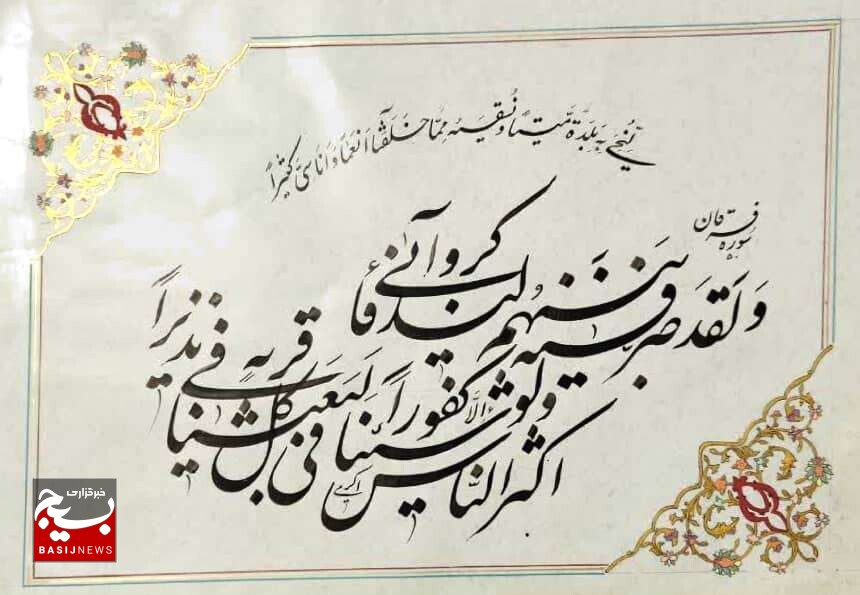 لِنُحْیِیَ بِهِ بَلْدَةً مَّیْتًا وَ نُسْقِیَهُ مِمَّا خَلَقْنَا أَنْعَمًا وَ أَنَاسِیَّ کَثِیرًا
سوره فرقان
وَلَقَد صَرَّفنهُ بَینَهُم لیذکروا فأبی
اکثر الناس إلّا کفوراً
ولو شئنا لَبَعَثنا فی کل قریة نذیراً
خبرگزاری
بسیج
BASIJNEWS